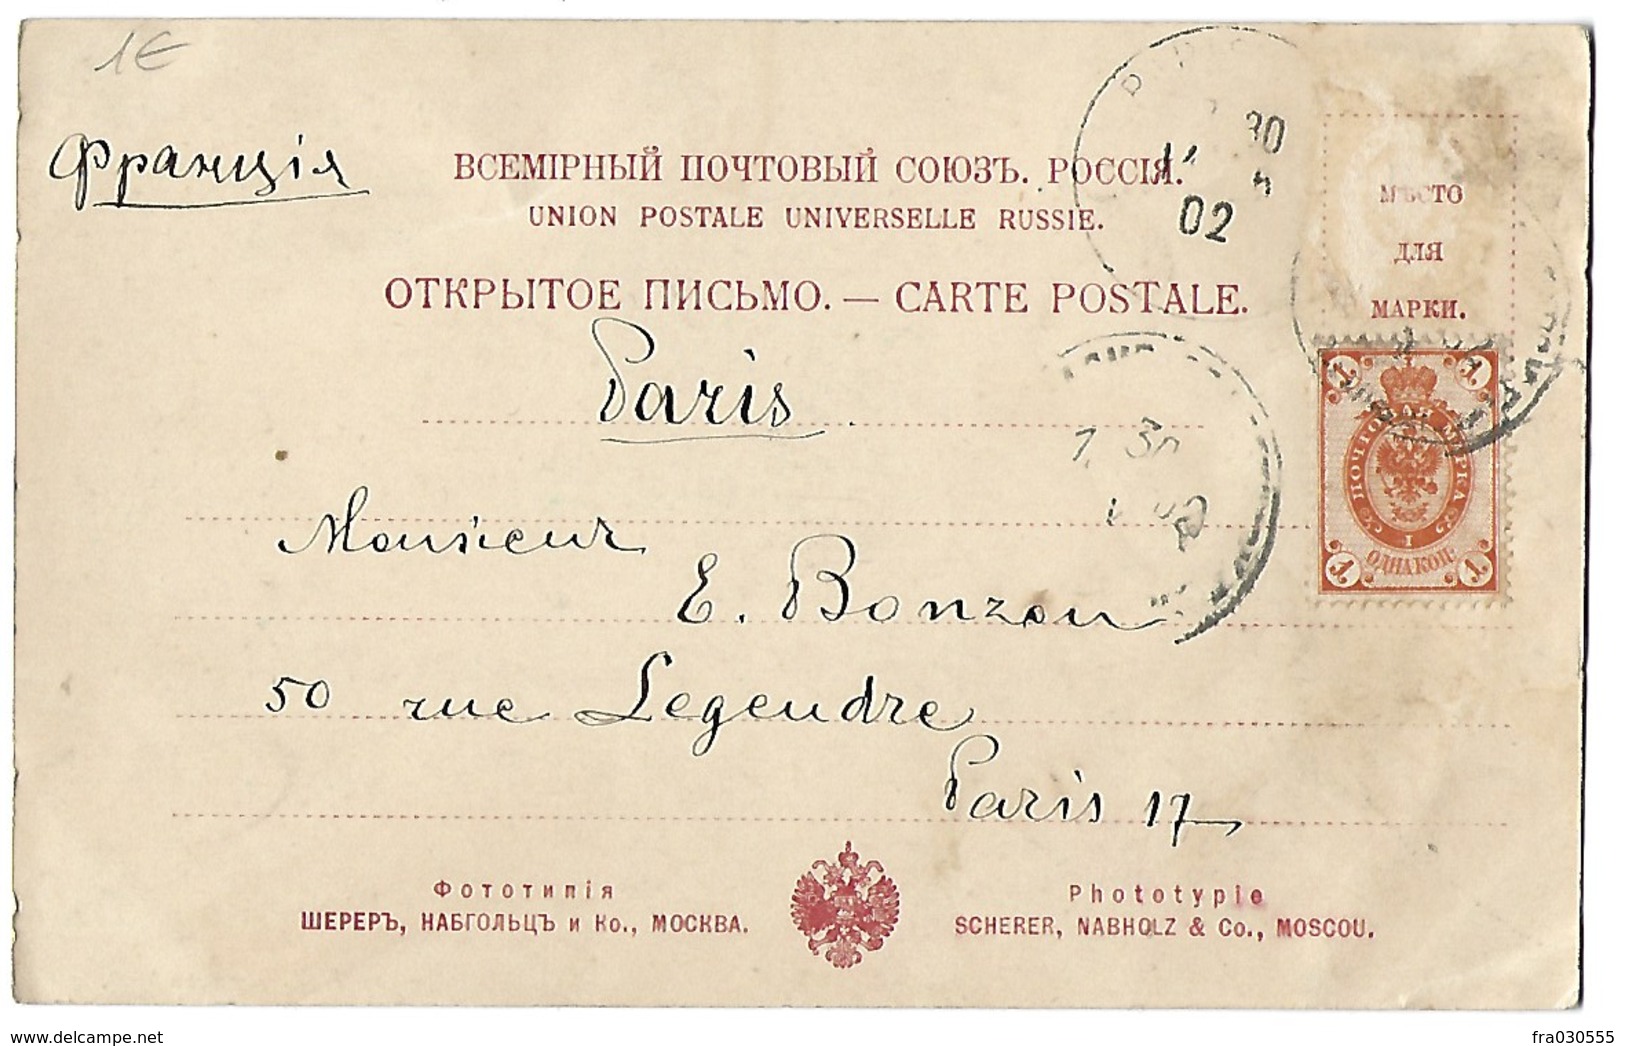 1€
Франція
ВСЕМІРНЫЙ ПОЧТОВЫЙ СОЮЗЪ. РОССІЯ.
UNION POSTALE UNIVERSELLE RUSSIE.
ОТКРЫТОЕ ПИСЬМО. — CARTE POSTALE.
30
02
МѢСТО
ДЛЯ
МАРКИ.
Paris
1 1
ПОЧТОВАЯ МАРКА
1
ОДНА КОП.
1 1
Monsieur
E. Bonzon
50 rue Legendre
Paris 17
Фототипія
ШЕРЕРЪ, НАБГОЛЬЦЪ и Ко., МОСКВА.
Phototypie
SCHERER, NABHOLZ & Co., MOSCOU.
delcampe.net
fra030555